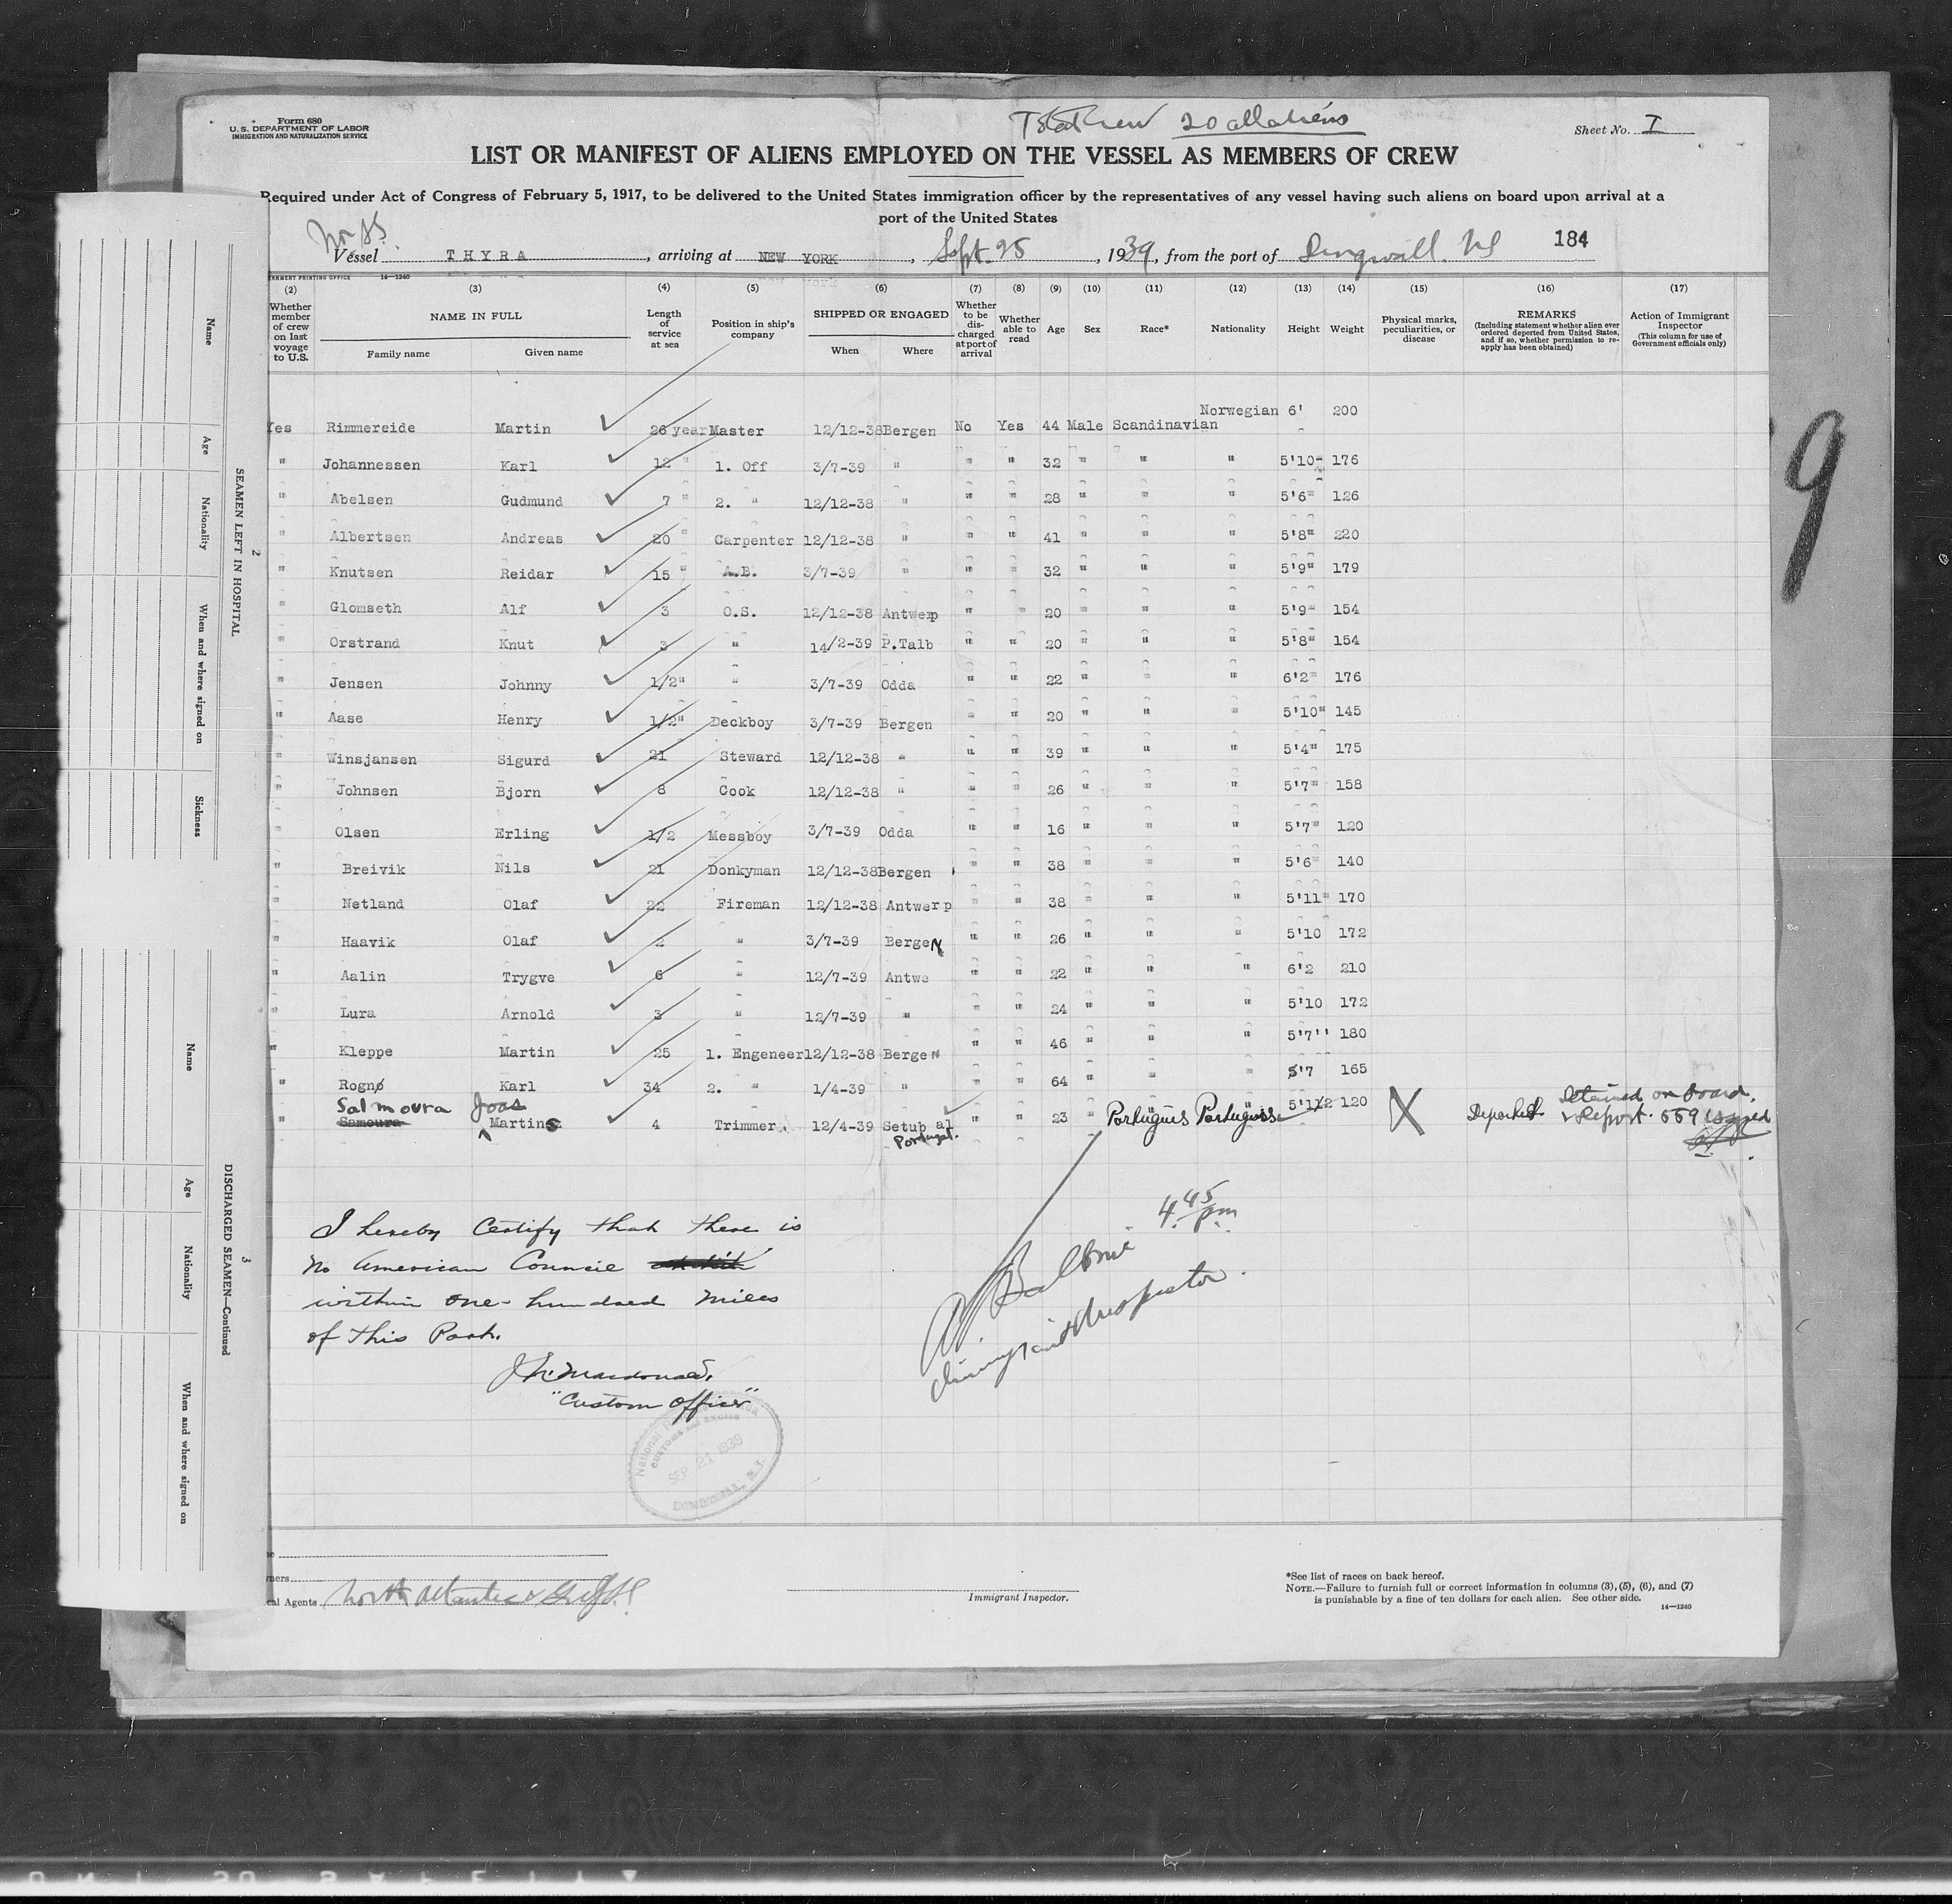 Form 680
U.S. DEPARTMENT OF LABOR
IMMIGRATION AND NATURALIZATION SERVICE
Total Crew 20 all aliens
Sheet No. I
LIST OR MANIFEST OF ALIENS EMPLOYED ON THE VESSEL AS MEMBERS OF CREW
Required under Act of Congress of February 5, 1917, to be delivered to the United States immigration officer by the representatives of any vessel having such aliens on board upon arrival at a
port of the United States
Nor SS.
Vessel THYRA, arriving at NEW YORK, Sept. 25, 1939, from the port of Dingwall. NS 184
14-1240
(2) (3) (4) (5) (6) (7) (8) (9) (10) (11) (12) (13) (14) (15) (16) (17)
Whether member of crew on last voyage to U.S.
NAME IN FULL
Family name Given name
Length of service at sea
Position in ship's company
SHIPPED OR ENGAGED
When Where
Whether to be discharged at port of arrival
Whether able to read
Age
Sex
Race*
Nationality
Height
Weight
Physical marks, peculiarities, or disease
REMARKS
(Including statement whether alien ever ordered deported from United States, and if so, whether permission to reapply has been obtained)
Action of Immigrant Inspector
(This column for use of Government officials only)
Yes Rimmereide Martin 26 year Master 12/12-38 Bergen No Yes 44 Male Scandinavian Norwegian 6' 200
" Johannessen Karl 12 " 1. Off 3/7-39 " " " 32 " " " 5'10" 176
" Abelsen Gudmund 7 " 2. " 12/12-38 " " " 28 " " " 5'6" 126
" Albertsen Andreas 20 " Carpenter 12/12-38 " " " 41 " " " 5'8" 220
" Knutsen Reidar 15 " A.B. 3/7-39 " " " 32 " " " 5'9" 179
" Glomseth Alf 3 O.S. 12/12-38 Antwerp " " 20 " " " 5'9" 154
" Orstrand Knut 3 " 14/2-39 P.Talb " " 20 " " " 5'8" 154
" Jensen Johnny 1/2" " 3/7-39 Odda " " 22 " " " 6'2" 176
" Aase Henry 1/2" Deckboy 3/7-39 Bergen " " 20 " " " 5'10" 145
" Winsjansen Sigurd 21 Steward 12/12-38 " " " 39 " " " 5'4" 175
" Johnsen Bjorn 8 Cook 12/12-38 " " " 26 " " " 5'7" 158
" Olsen Erling 1/2 Messboy 3/7-39 Odda " " 16 " " " 5'7" 120
" Breivik Nils 21 Donkyman 12/12-38 Bergen " " 38 " " " 5'6" 140
" Netland Olaf 22 Fireman 12/12-38 Antwerp " " 38 " " " 5'11" 170
" Haavik Olaf 2 " 3/7-39 Bergen " " 26 " " " 5'10 172
" Aalin Trygve 6 " 12/7-39 Antwe " " 22 " " " 6'2 210
" Lura Arnold 3 " 12/7-39 " " " 24 " " " 5'10 172
" Kleppe Martin 25 1. Engeneer 12/12-38 Bergen " " 46 " " " 5'7'' 180
" Rognø Karl 34 2. " 1/4-39 " " " 64 " " " 5'7 165
Salmoura Joas
" Samoura Martins 4 Trimmer. 12/4-39 Setub al " " 23 " Portugues Portuguese 5'1/2 120 X Deported Detained on board.
Portugal.
Report 669 issued
I hereby Certify that there is
no American Council
within one-hundred miles
of this Port.
J. Macdonald.
"Custom Officer"
SEP 21 1939
4.45 pm
Immigrant Inspector.
cal Agents North Atlantic & Gulf
Immigrant Inspector.
*See list of races on back hereof.
NOTE.—Failure to furnish full or correct information in columns (3), (5), (6), and (7)
is punishable by a fine of ten dollars for each alien. See other side. 14—1240
9
2
SEAMEN LEFT IN HOSPITAL
Name
Age
Nationality
When and where signed on
Sickness
3
DISCHARGED SEAMEN—Continued
Name
Age
Nationality
When and where signed on